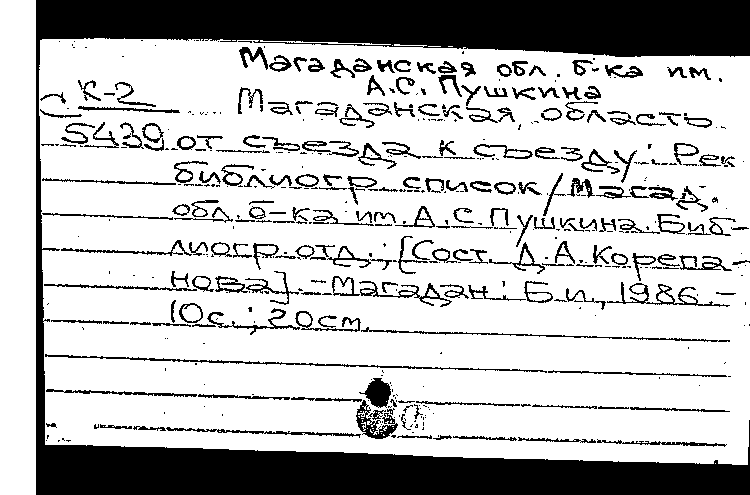 Магаданская обл. б-ка им.
А.С. Пушкина
К-2 Магаданская область
5439 от съезда к съезду: Рек.
библиогр. список / Магад.
обл. б-ка им. А.С. Пушкина. Биб-
лиогр. отд.; [Сост. Д.А. Корепа-
нова]. - Магадан: Б.и., 1986. -
10с.; 20см.